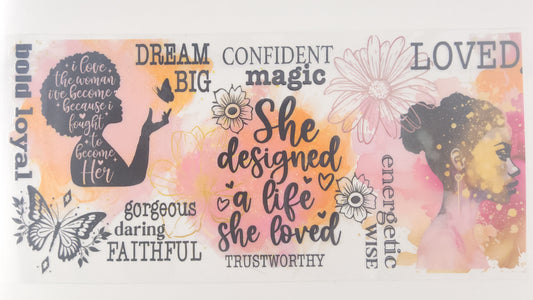 bold loyal
i love
the woman
i've become
because i
fought
to
become
Her
DREAM
BIG
CONFIDENT
magic
LOVED
She
designed
a life
she loved
TRUSTWORTHY
gorgeous
daring
FAITHFUL
energetic
WISE